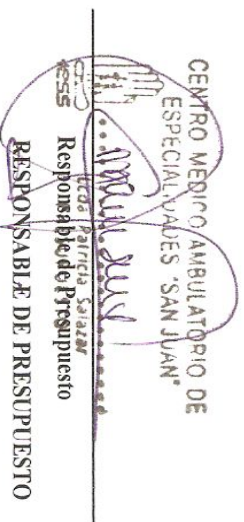 CENTRO MEDICO AMBULATORIO DE
ESPECIALIDADES "SAN JUAN"
IESS
Patricia Salazar
Responsable de Presupuesto
RESPONSABLE DE PRESUPUESTO